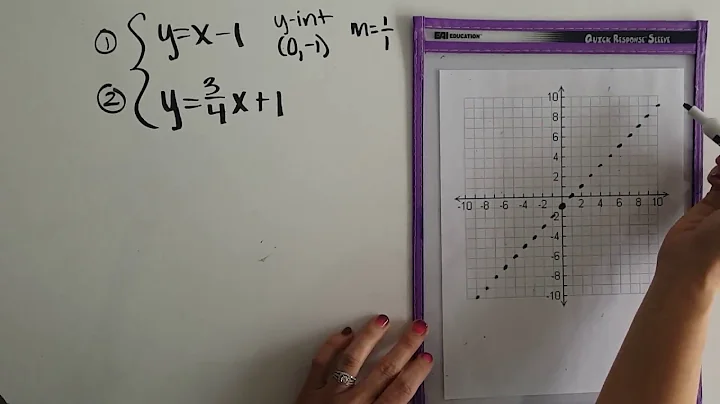 ① y=x-1 y-int m=1/1
(0,-1)
② y=3/4x+1
EAI EDUCATION QUICK RESPONSE SLEEVE
10
8
6
4
2
-10 -8 -6 -4 -2 2 4 6 8 10
-2
-4
-6
-8
-10